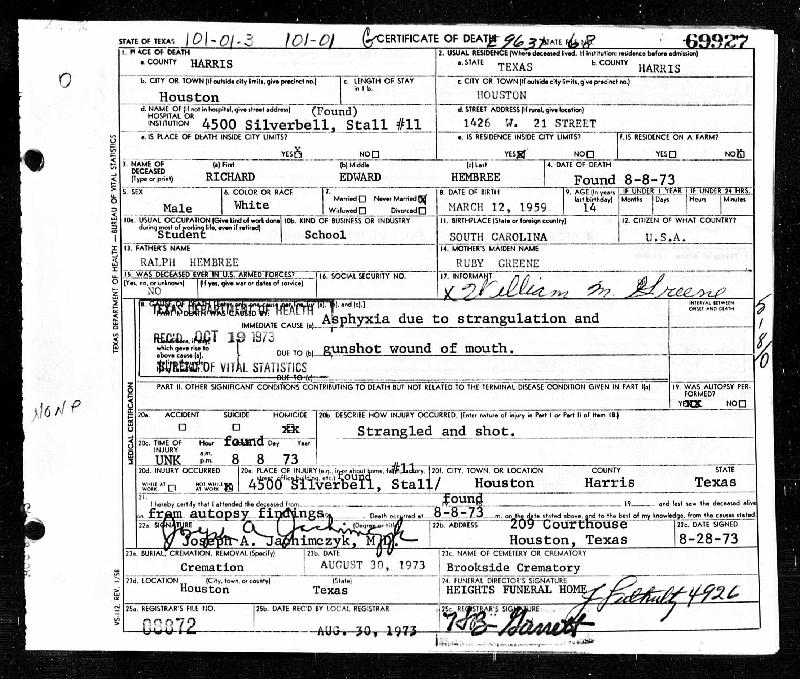 STATE OF TEXAS 101-01-3 101-01 CERTIFICATE OF DEATH STATE 69927
1. PLACE OF DEATH
a. COUNTY HARRIS
2. USUAL RESIDENCE (Where deceased lived. If institution: residence before admission)
a. STATE TEXAS b. COUNTY HARRIS
b. CITY OR TOWN (If outside city limits, give precinct no.) Houston
c. LENGTH OF STAY in 1b.
c. CITY OR TOWN (If outside city limits, give precinct no.) HOUSTON
d. NAME OF (If not in hospital, give street address) HOSPITAL OR INSTITUTION (Found) 4500 Silverbell, Stall #11
d. STREET ADDRESS (If rural, give location) 1426 W. 21 STREET
e. IS PLACE OF DEATH INSIDE CITY LIMITS? YES X NO
e. IS RESIDENCE INSIDE CITY LIMITS? YES X NO
f. IS RESIDENCE ON A FARM? YES NO X
3. NAME OF DECEASED (Type or print) (a) First RICHARD (b) Middle EDWARD (c) Last HEMBREE
4. DATE OF DEATH Found 8-8-73
5. SEX Male
6. COLOR OR RACE White
7. Married Never Married X Widowed Divorced
8. DATE OF BIRTH MARCH 12, 1959
9. AGE (In years last birthday) 14
IF UNDER 1 YEAR Months Days
IF UNDER 24 HRS. Hours Minutes
10a. USUAL OCCUPATION (Give kind of work done during most of working life, even if retired) Student
10b. KIND OF BUSINESS OR INDUSTRY School
11. BIRTHPLACE (State or foreign country) SOUTH CAROLINA
12. CITIZEN OF WHAT COUNTRY? U.S.A.
13. FATHER'S NAME RALPH HEMBREE
14. MOTHER'S MAIDEN NAME RUBY GREENE
15. WAS DECEASED EVER IN U.S. ARMED FORCES? (Yes, no, or unknown) (If yes, give war or dates of service) NO
16. SOCIAL SECURITY NO.
17. INFORMANT X William M. Greene
INTERVAL BETWEEN ONSET AND DEATH
IMMEDIATE CAUSE (a) Asphyxia due to strangulation and
REC'D. OCT 19 1973
which gave rise to above cause (a),
DUE TO (b) gunshot wound of mouth.
BUREAU OF VITAL STATISTICS
DUE TO (c)
PART II. OTHER SIGNIFICANT CONDITIONS CONTRIBUTING TO DEATH BUT NOT RELATED TO THE TERMINAL DISEASE CONDITION GIVEN IN PART I(a)
19. WAS AUTOPSY PERFORMED? YES XX NO
NONE
20a. ACCIDENT SUICIDE HOMICIDE XX
20b. DESCRIBE HOW INJURY OCCURRED. (Enter nature of injury in Part I or Part II of Item 18.) Strangled and shot.
20c. TIME OF INJURY Hour a.m. p.m. Day Year found UNK 8 8 73
20d. INJURY OCCURRED WHILE AT WORK NOT WHILE AT WORK X
20e. PLACE OF INJURY Found #11 4500 Silverbell, Stall/
20f. CITY, TOWN, OR LOCATION Houston COUNTY Harris STATE Texas
21. I hereby certify that I attended the deceased from 19 and last saw the deceased alive
from autopsy findings Death occurred at found 8-8-73 m. on the date stated above, and to the best of my knowledge, from the causes stated.
22a. SIGNATURE Joseph A. Jachimczyk (Degree or title) Joseph A. Jachimczyk, M.D.
22b. ADDRESS 209 Courthouse Houston, Texas
22c. DATE SIGNED 8-28-73
23a. BURIAL, CREMATION, REMOVAL (Specify) Cremation
23b. DATE AUGUST 30, 1973
23c. NAME OF CEMETERY OR CREMATORY Brookside Crematory
23d. LOCATION (City, town, or county) Houston (State) Texas
24. FUNERAL DIRECTOR'S SIGNATURE HEIGHTS FUNERAL HOME 4926
25a. REGISTRAR'S FILE NO. 08872
25b. DATE REC'D BY LOCAL REGISTRAR AUG. 30, 1973
25c. REGISTRAR'S SIGNATURE Garrett
VS-112 REV. 1/58
MEDICAL CERTIFICATION
TEXAS DEPARTMENT OF HEALTH — BUREAU OF VITAL STATISTICS